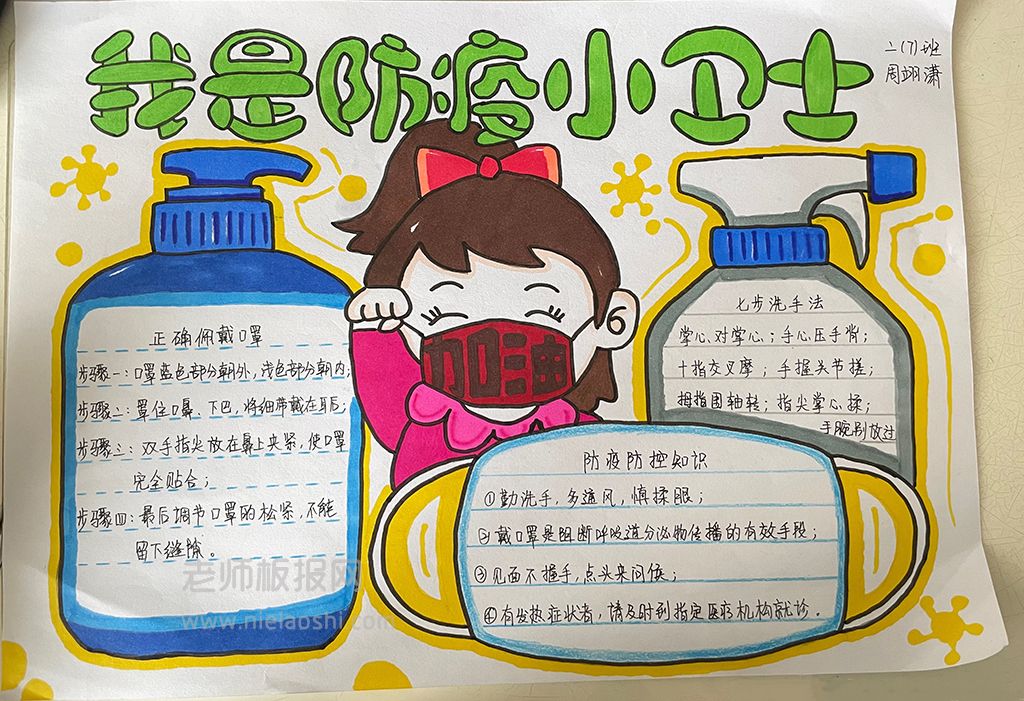 我是防疫小卫士
二(7)班
周翊潇
正确佩戴口罩
步骤一：口罩蓝色部分朝外，浅色部分朝内；
步骤二：罩住口鼻、下巴，将细带戴在耳后；
步骤三：双手指尖放在鼻上夹紧，使口罩
完全贴合；
步骤四：最后调节口罩的松紧，不能
留下缝隙。
加油
七步洗手法
掌心对掌心；手心压手背；
十指交叉摩；手握头节搓；
拇指围轴转；指尖掌心揉；
手腕别放过
防疫防控知识
①勤洗手，多通风，慎揉眼；
②戴口罩是阻断呼吸道分泌物传播的有效手段；
③见面不握手，点头来问候；
④有发热症状者，请及时到指定医疗机构就诊。
老师板报网
www.nielaoshi.com